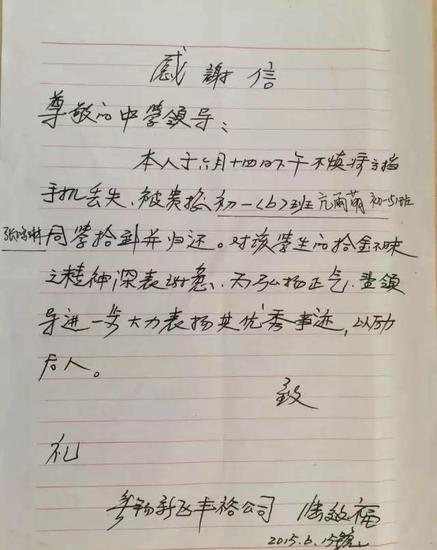 感謝信
尊敬的中學領导：
本人于六月十四日下午不慎将
手机丢失、被贵校初一〈6〉班亢雨萌 初一5班
同学拾到并归还。对该学生的拾金不昧
之精神深表谢意、为弘扬正气、望領
导进一步大力表扬其优秀事迹，以励
后人。
致
礼
丰裕公司
2015.6.15